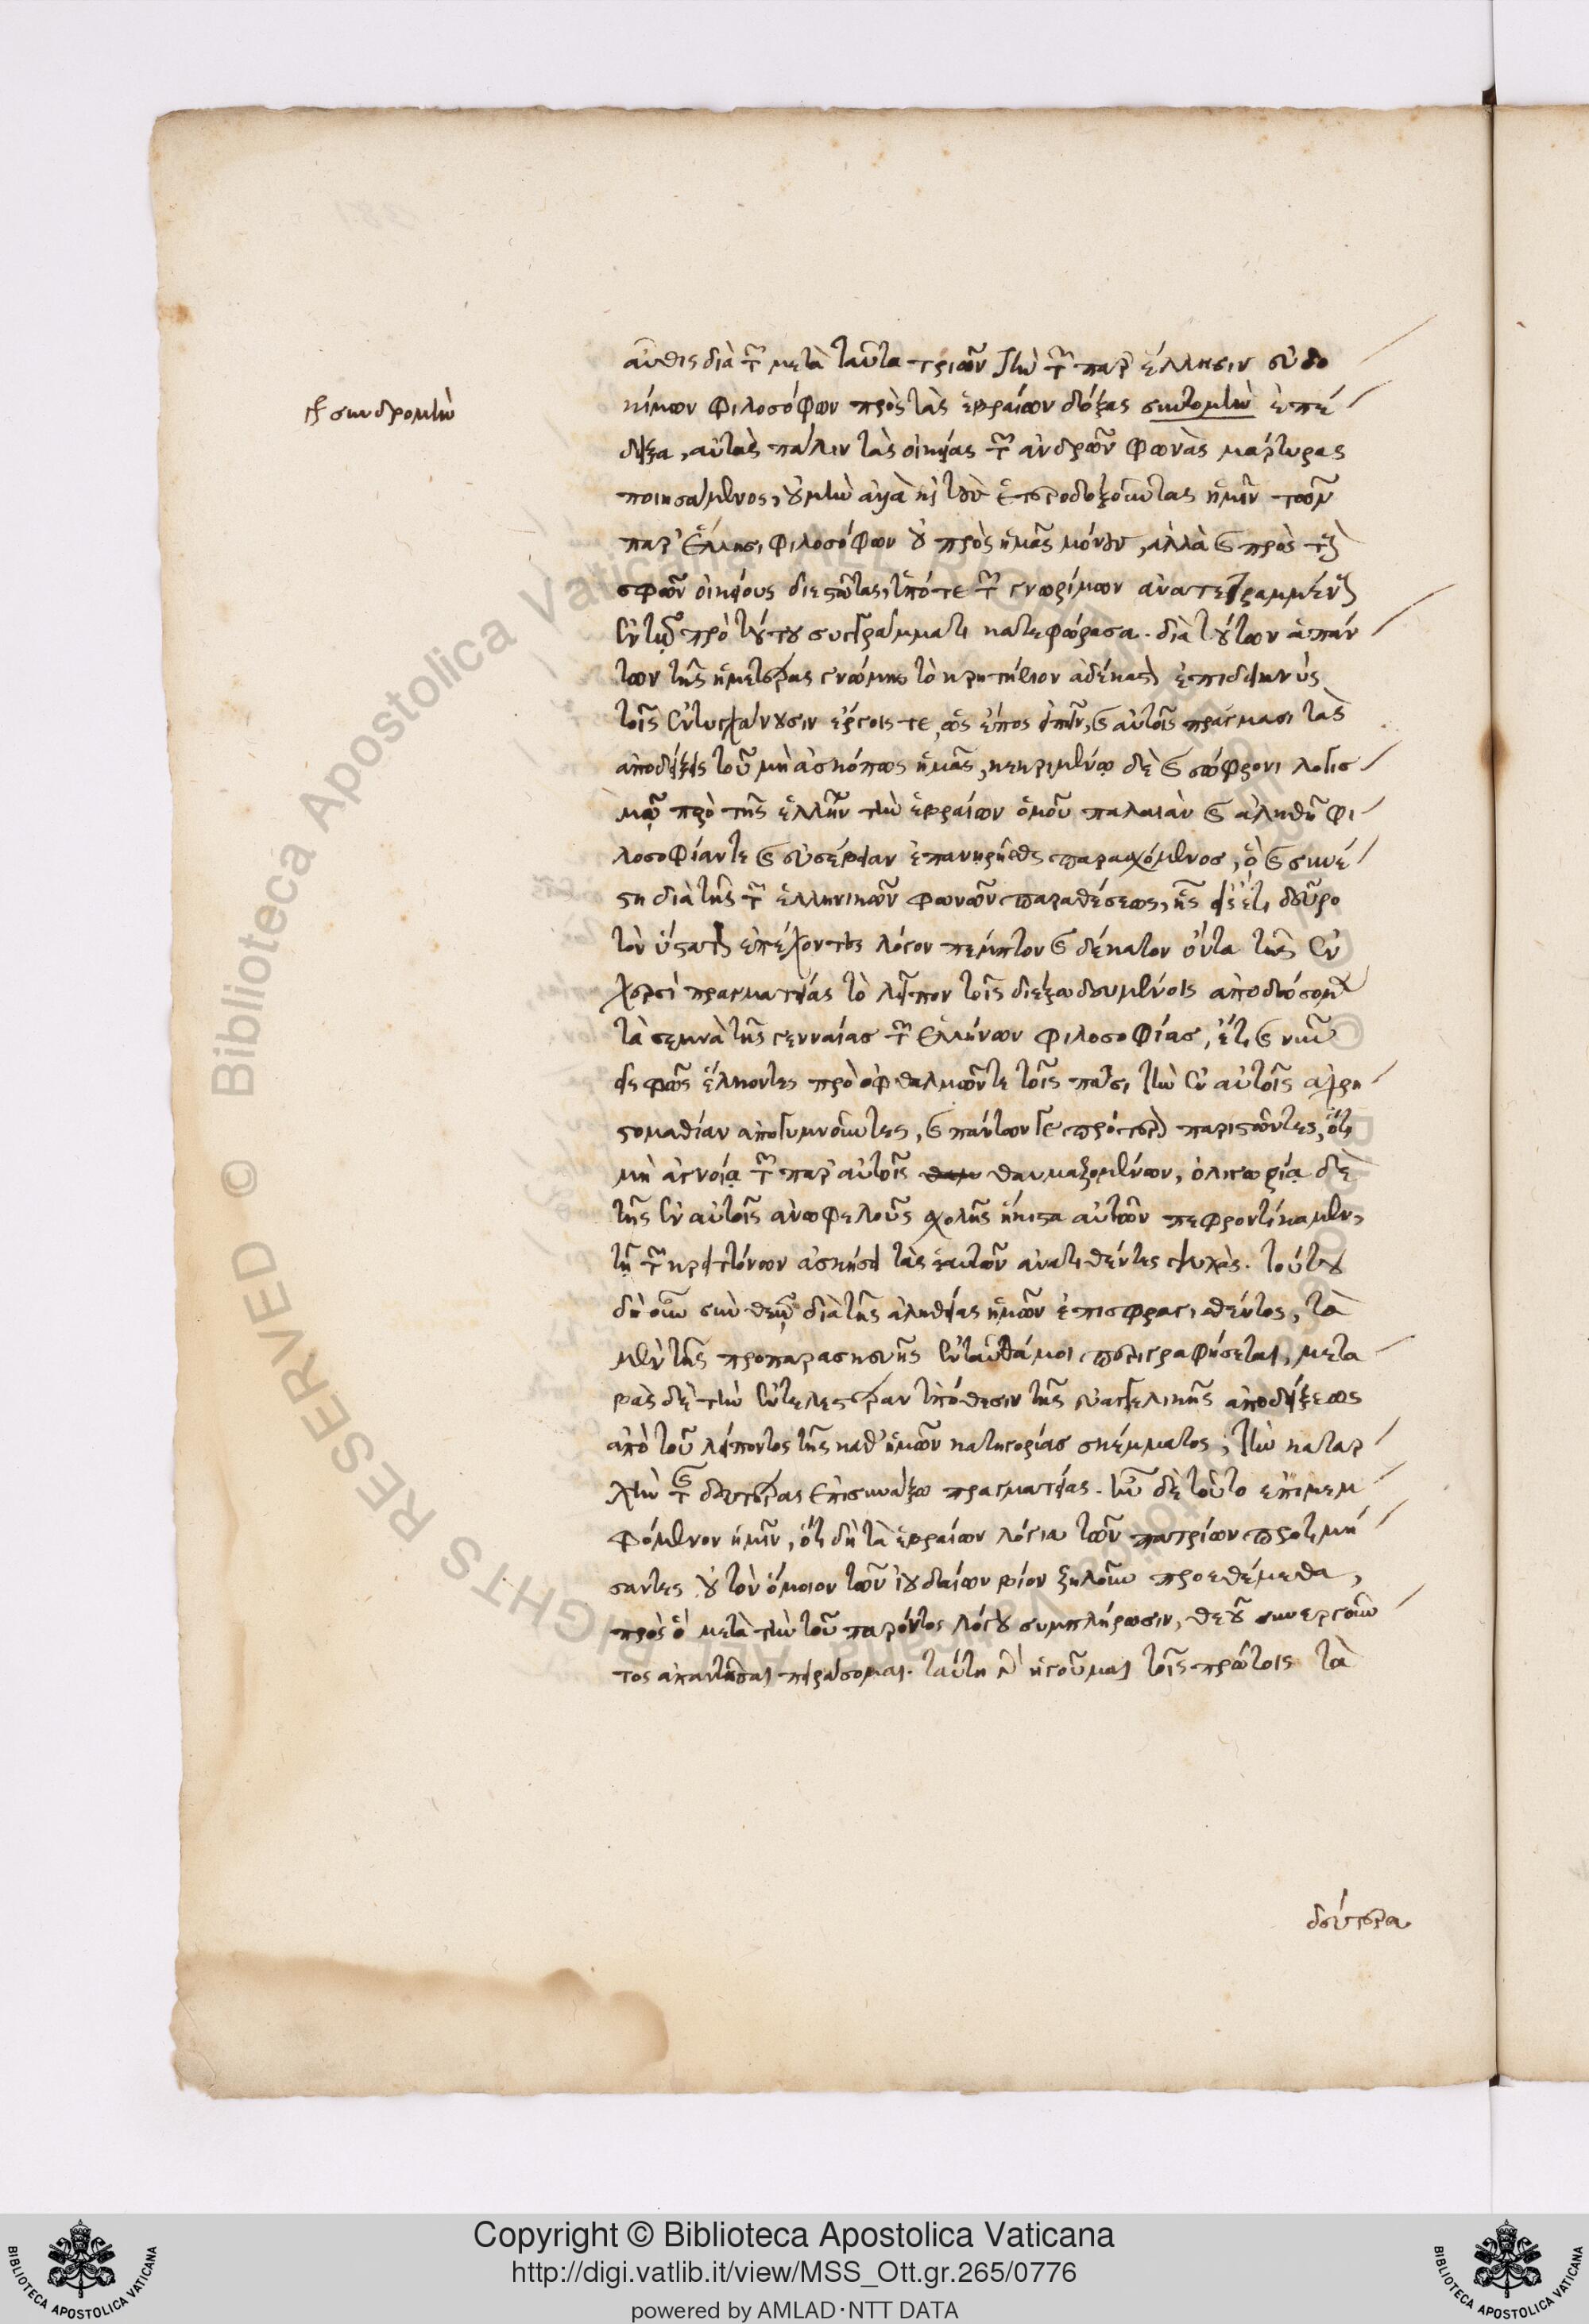 αὖθις διὰ τῶν μετὰ ταῦτα τριῶν τὴν τῶν παρ' ἕλλησιν εὐδο
κίμων φιλοσόφων πρὸς τὰς ἑβραίων δόξας συντομὴν ἐπέ
συνδρομὴν
δειξα, αὐτὰς πάλιν τὰς οἰκείας τῶν ἀνδρῶν φωνὰς μάρτυρας
ποιησάμενος, οὐ μὴν ἀλλὰ καὶ τοὺς ἑτεροδοξοῦντας ἡμῖν τῶν
παρ' ἕλλησι φιλοσόφων οὐ πρὸς ἡμᾶς μόνους, ἀλλὰ καὶ πρὸς τοὺς
σφῶν οἰκείους διεστῶτας, ὑπό τε τῶν γνωρίμων ἀνατετραμμένους
ἐν τῷ πρὸ τούτου συγγράμματι κατεφώρασα. διὰ τούτων ἁπάν
των τῆς ἡμετέρας γνώμης τὸ κριτήριον ἀδέκαστον ἐπιδεικνὺς
τοῖς ἐντυγχάνουσιν ἔργοις τε, ὡς ἔπος εἰπεῖν, καὶ αὐτοῖς πράγμασι τὰς
ἀποδείξεις τοῦ μὴ ἀσκόπως ἡμᾶς, κεκριμένῳ δὲ καὶ σώφρονι λογισ
μῷ πρὸ τῆς ἑλλήνων τὴν ἑβραίων ὁμοῦ παλαιὰν καὶ ἀληθῆ φι
λοσοφίαν τε καὶ εὐσέβειαν ἐπανῃρῆσθαι παρασχόμενος, ὃ καὶ συνέ
στη διὰ τῆς τῶν ἑλληνικῶν φωνῶν παραθέσεως, ἧς εἰσέτι δεῦρο
τὸν ὕστατον ἐπέχοντες λόγον πέμπτον καὶ δέκατον ὄντα τῆς ἐν
χερσὶ πραγματείας τὸ λεῖπον τοῖς διεξωδευμένοις ἀποδώσομεν
τὰ σεμνὰ τῆς γενναίας τῶν ἑλλήνων φιλοσοφίας, ἔτι καὶ νῦν
εἰς φῶς ἕλκοντες πρὸ ὀφθαλμῶν τε τοῖς πᾶσι τὴν ἐν αὐτοῖς ἀχρη
στομαθίαν ἀπογυμνοῦντες, καὶ πάντων γε πρότερον παριστῶντες, ὅτι
μὴ ἀγνοίᾳ τῶν παρ' αὐτοῖς θαυμαζομένων, ὀλιγωρίᾳ δὲ
τῆς ἐν αὐτοῖς ἀνωφελοῦς σχολῆς ἥκιστα αὐτῶν πεφροντίκαμεν,
τῇ τῶν κρειττόνων ἀσκήσει τὰς ἑαυτῶν ἀνατιθέντες ψυχάς. τούτου
δὴ οὖν σὺν θεῷ διὰ τῆς ἀληθείας ἡμῶν ἐπισφραγισθέντος, τὰ
μὲν τῆς προπαρασκευῆς ἐνταῦθά μοι περιγραφήσεται, μετα
βὰς δὲ τὴν ἐντελεστέραν ὑπόθεσιν τῆς εὐαγγελικῆς ἀποδείξεως
ἀπὸ τοῦ λείποντος τῆς καθ' ἡμῶν κατηγορίας σκέμματος, τὴν καταρ
χὴν τῆς δευτέρας ἐπισυνάξω πραγματείας. ἦν δὲ τοῦτο ἐπιμεμ
φόμενον ἡμῖν, ὅτι δὴ τὰ ἑβραίων λόγια τῶν πατρίων προτιμή
σαντες οὐ τὸν ὅμοιον τῶν ἰουδαίων βίον ζηλοῦν προεθέμεθα,
πρὸς ὃ μετὰ τὴν τοῦ παρόντος λόγου συμπλήρωσιν, θεοῦ συνεργοῦν
τος ἀπαντῆσαι πειράσομαι. ταύτῃ γὰρ ἡγοῦμαι τοῖς πρώτοις τὰ
δεύτερα
Copyright © Biblioteca Apostolica Vaticana
http://digi.vatlib.it/view/MSS_Ott.gr.265/0776
powered by AMLAD·NTT DATA